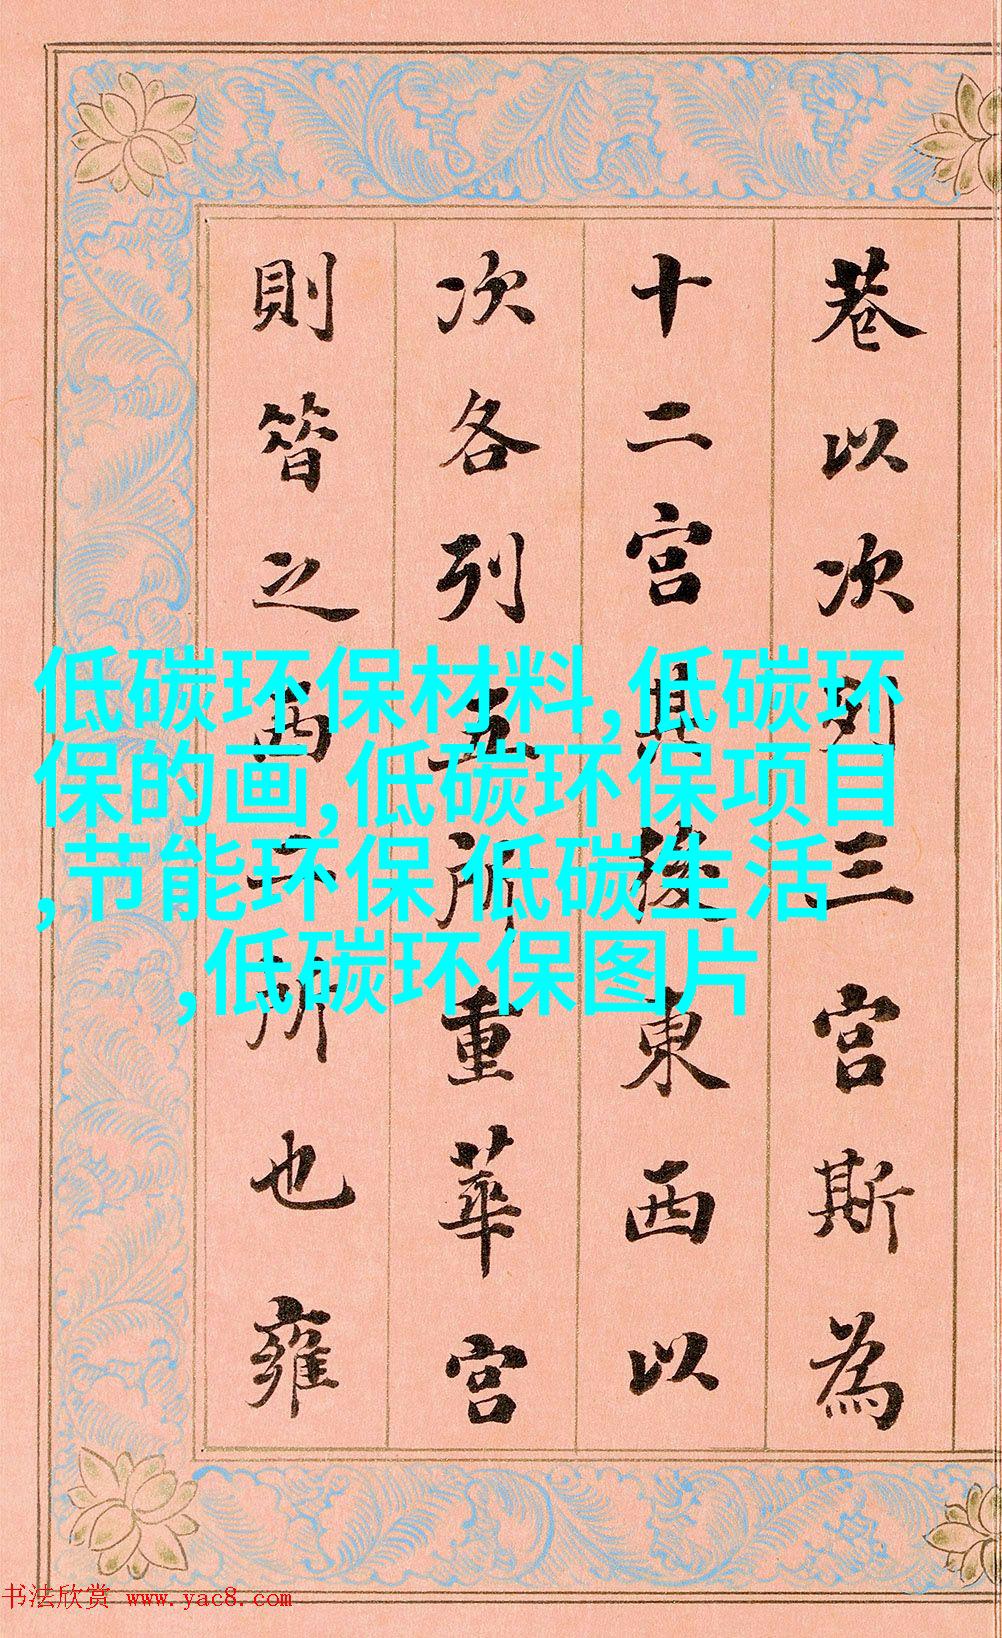 巷以次列三宮斯為
十二宮其後東西以
次各列五所重華宮
則昔之西二所也雍
低碳环保材料,低碳环
保的画,低碳环保项目
,节能环保 低碳生活
,低碳环保图片
书法欣赏 www.yac8.com